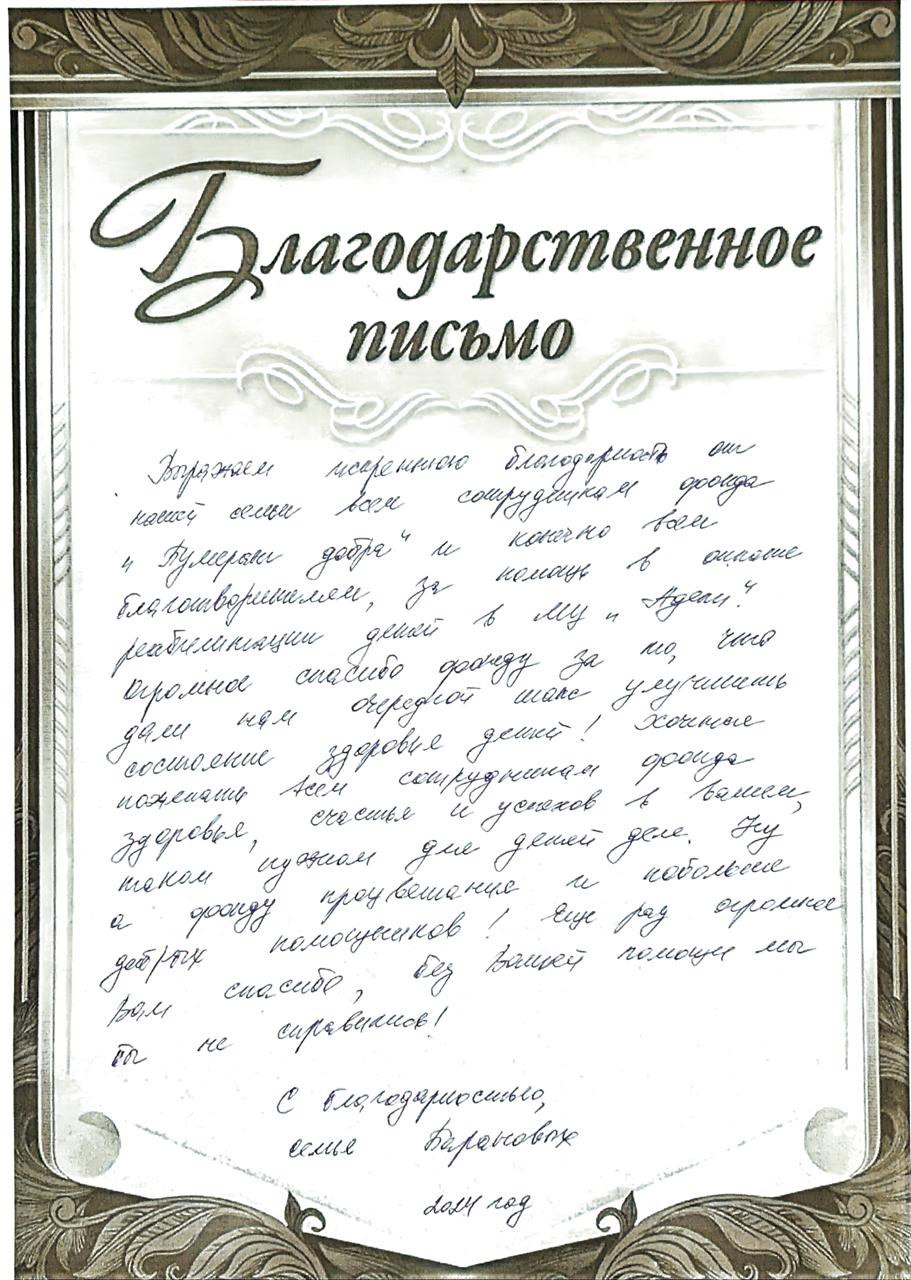 Благодарственное
письмо
Выражаем искреннюю благодарность от
нашей семьи всем сотрудникам фонда
"Бумеранг добра" и конечно всем
благотворителям, за помощь в оплате
реабилитации детей в МЦ "Адели".
Огромное спасибо фонду за то, что
дали нам очередной шанс улучшить
состояние здоровья детей! Хочется
пожелать всем сотрудникам фонда
здоровья, счастья и успехов в вашем,
таком нужном для детей деле. Ну
а фонду процветания и побольше
добрых помощников! Еще раз огромное
Вам спасибо, без Вашей помощи мы
бы не справились!
С благодарностью,
семья Барановых
2024 год